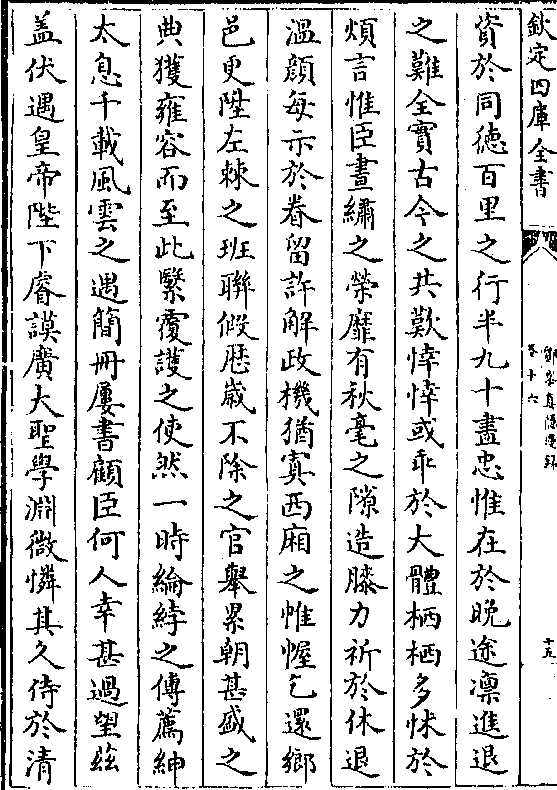 欽定四庫全書
卷十六
十五
資於同德百里之行半九十盡忠惟在於晚途凛進退
之難全實古今之共歎悻悻或乖於大體栖栖多怵於
煩言惟臣晝繡之榮靡有秋毫之隙造膝力祈於休退
溫顔每示於眷留許解政機猶寘西廂之帷幄乞還鄉
邑更陞左棘之班聯假歴歳不除之官舉累朝甚盛之
典獲雍容而至此繄覆護之使然一時綸綍之傳薦紳
太息千載風雲之遇簡冊屢書顧臣何人幸甚過望兹
盖伏遇皇帝陛下睿謨廣大聖學淵微憐其久侍於清